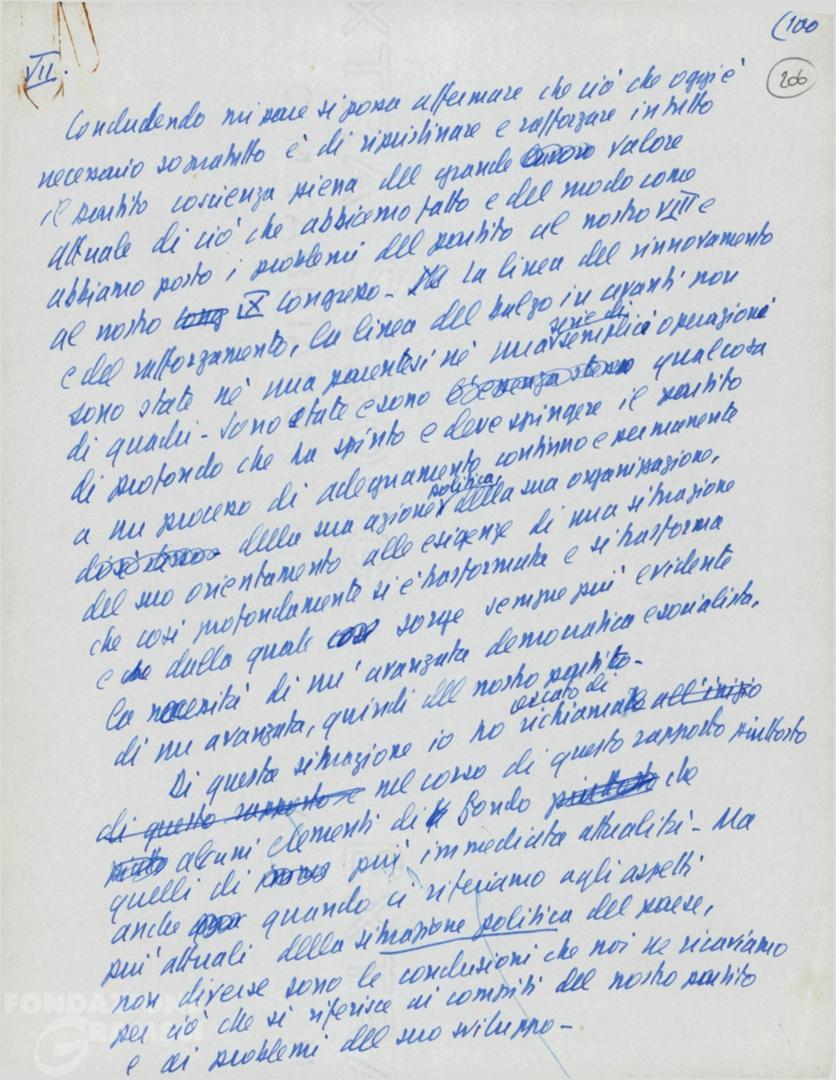 (100
206
VII.
Concludendo mi pare si possa affermare che ciò che oggi è
necessario soprattutto è di ripristinare e rafforzare in tutto
il partito coscienza piena del grande valore
attuale di ciò che abbiamo fatto e del modo come
abbiamo posto i problemi del partito al nostro VIII e
al nostro cong IX congresso - La linea del rinnovamento
e del rafforzamento, la linea del balzo in avanti non
sono state né una parentesi né una serie di semplici operazioni
di quadri - Sono state e sono qualcosa
di profondo che ha spinto e deve spingere il partito
a un processo di adeguamento continuo e permanente
della sua azione politica, della sua organizzazione,
del suo orientamento alle esigenze di una situazione
che così profondamente si è trasformata e si trasforma
e dalla quale sorge sempre più evidente
la necessità di un'avanzata democratica e socialista,
di un avanzata, quindi del nostro partito -
Di questa situazione io ho cercato di richiamare all'inizio
di questo rapporto e nel corso di questo rapporto piuttosto
alcuni elementi di fondo piuttosto che
quelli di più immediata attualità - Ma
anche quando ci riferiamo agli aspetti
più attuali della situazione politica del paese,
non diverse sono le conclusioni che noi ne ricaviamo
per ciò che si riferisce ai compiti del nostro partito
e ai problemi del suo sviluppo -
FONDAZIONE
GRAMSCI